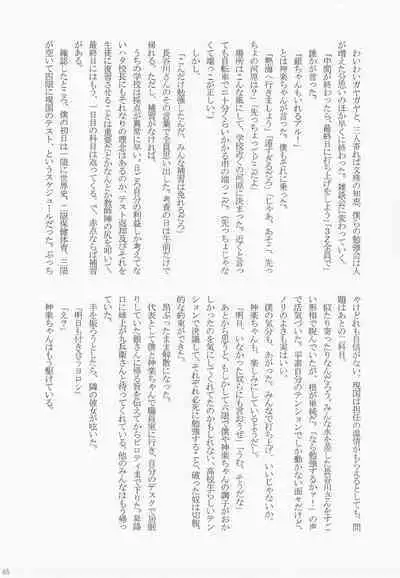 わいわいガヤガヤと、三人寄れば文殊の知恵。僕らの勉強会は人
が増えた分思いのほか早くに終わった。雑談会に変わっていく。
「中間が終わったら、最終日に打ち上げをしよう」「3Z全員で」
誰かが言った。
「銀ちゃんもいれるアル！」
とは神楽ちゃんが言った。僕もそれに乗った。
「熱海へ行きましょう」「遠すぎるだろ」「じゃあ、あそこ、先っ
ちょの河原は？」「先っちょってどこだよ」
場所はこんな風にして、学校近くの河原に決めた。近くと言っ
ても自転車で二十分くらいかかる市の端っこだ。（先っちょじゃな
く端っこが正しい。）
しかし。
「こんだけ勉強したんだ、みんな補習は免れるだろ」
長谷川さんのその言葉で全員思い出した。考査の日は午前だけで
帰れる。ただし、補習がなければ。
うちの学校は採点が異常に早い。日ごろ自分の利益しか考えてな
いハタ校長にもそれなりの理念はあるのか、テスト返却及びそれを
生徒に復習させることは重要だとかなんとか教師陣の尻を叩いて、
最終日にはもう、一日目の科目は返ってくる。で、赤点ならば補習
がある。
確認したところ、僕らの初日は一限に世界史、二限保健体育、三限
が空いて四限に現国のテスト、というスケジュールだった。ぶっち
ゃけどれも自信がない。現国は担任の温情がもらえるとしても、問
題はあとの二科目。
似たり寄ったりなんだろう、みんな水を差した長谷川さんをすご
い形相で睨んでいたが、根が単純だ。「なら勉強するかァー」の声
で活気づいた。平素自分のテンションでしか動かない面々だけど、
ノリのよさも実はいい。
僕の気分も、あがった。みんなで打ち上げ、いいじゃないか。
神楽ちゃんも、楽しみにしているようだし。
「明日、いなかった奴らにも言おうぜ」「うむ、そうだな」
あとから思うと、もしかして六限で僕や神楽ちゃんの調子がおか
しかったのを気にしてくれてたのかもしれない。高校生らしいテン
ションで決議して、それぞれ必死に勉強すること、破った奴は切腹、
的な約束ができた。
昂ぶったまま解散になった。
代表として僕と神楽ちゃんで職員室に行き、自分のデスクで居眠
りしていた銀さんに帰る旨を伝えてからピロティまで下りた。昇降
口に姉上が九兵衛さんと待ってくれている。他のみんなはもう帰っ
手を振ろうとしたら、隣の彼女が呟いた。
「明日も付き合うヨロシ」
「え？」
神楽ちゃんはもう駆けている。
65